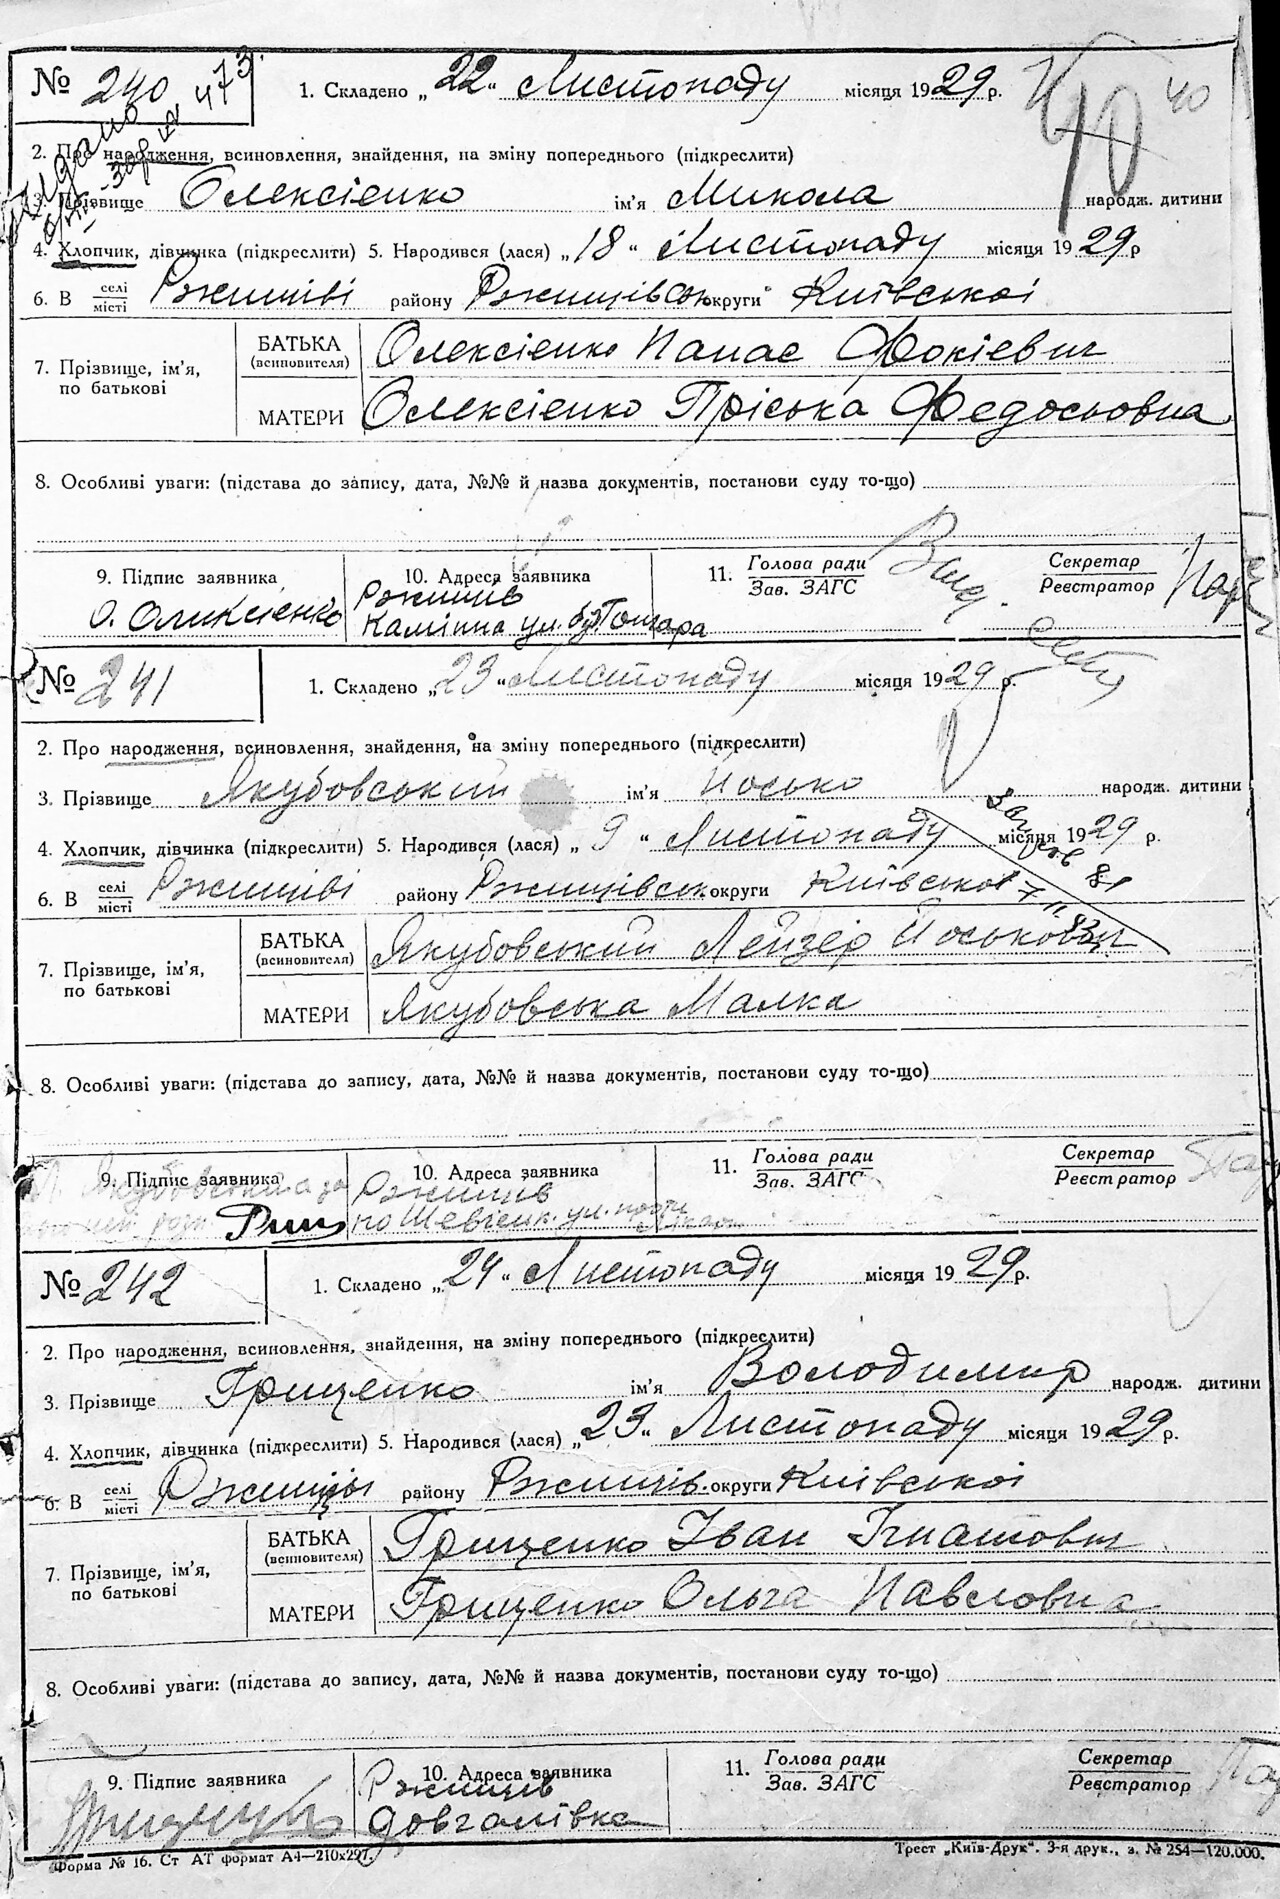 40 40
№ 240 1. Складено „22“ Листопаду місяця 1929 р.
Видано
473
2. Про народження, всиновлення, знайдення, на зміну попереднього (підкреслити)
3. Прізвище Олексієнко ім'я Микола народж. дитини
4. Хлопчик, дівчинка (підкреслити) 5. Народився (лася) „18“ Листопаду місяця 1929 р
6. В селі/місті Ржищіві району Ржищівськ округи Київської
7. Прізвище, ім'я, по батькові
БАТЬКА (всиновителя) Олексієнко Панас Фокієвич
МАТЕРИ Олексієнко Пріська Федосьовна
8. Особливі уваги: (підстава до запису, дата, №№ й назва документів, постанови суду то-що)
9. Підпис заявника 10. Адреса заявника 11. Голова ради/Зав. ЗАГС Секретар/Реєстратор
О. Оликсіенко Ржищів
Камінна ул. бр. Гончара
№ 241 1. Складено „23“ Листопаду місяця 1929 р.
2. Про народження, всиновлення, знайдення, на зміну попереднього (підкреслити)
3. Прізвище Якубовський ім'я Йосько народж. дитини
4. Хлопчик, дівчинка (підкреслити) 5. Народився (лася) „9“ Листопаду місяця 1929 р.
6. В селі/місті Ржищіві району Ржищівськ. округи Київської
7. Прізвище, ім'я, по батькові
БАТЬКА (всиновителя) Якубовський Лейзер Йоськович
МАТЕРИ Якубовська Малка
8. Особливі уваги: (підстава до запису, дата, №№ й назва документів, постанови суду то-що)
9. Підпис заявника 10. Адреса заявника 11. Голова ради/Зав. ЗАГС Секретар/Реєстратор
Якубовський Ржищів
по Шевченк. ул.
№ 242 1. Складено „24“ Листопаду місяця 1929 р.
2. Про народження, всиновлення, знайдення, на зміну попереднього (підкреслити)
3. Прізвище Гриценко ім'я Володимир народж. дитини
4. Хлопчик, дівчинка (підкреслити) 5. Народився (лася) „23“ Листопаду місяця 1929 р.
6. В селі/місті Ржищів району Ржищів. округи Київської
7. Прізвище, ім'я, по батькові
БАТЬКА (всиновителя) Гриценко Іван Ігнатович
МАТЕРИ Гриценко Ольга Павловна
8. Особливі уваги: (підстава до запису, дата, №№ й назва документів, постанови суду то-що)
9. Підпис заявника 10. Адреса заявника 11. Голова ради/Зав. ЗАГС Секретар/Реєстратор
Ржищів
Довгалівка
Форма № 16. Ст АТ формат А4—210х297. Трест „Київ-Друк“. 3-я друк., з. № 254—120.000.